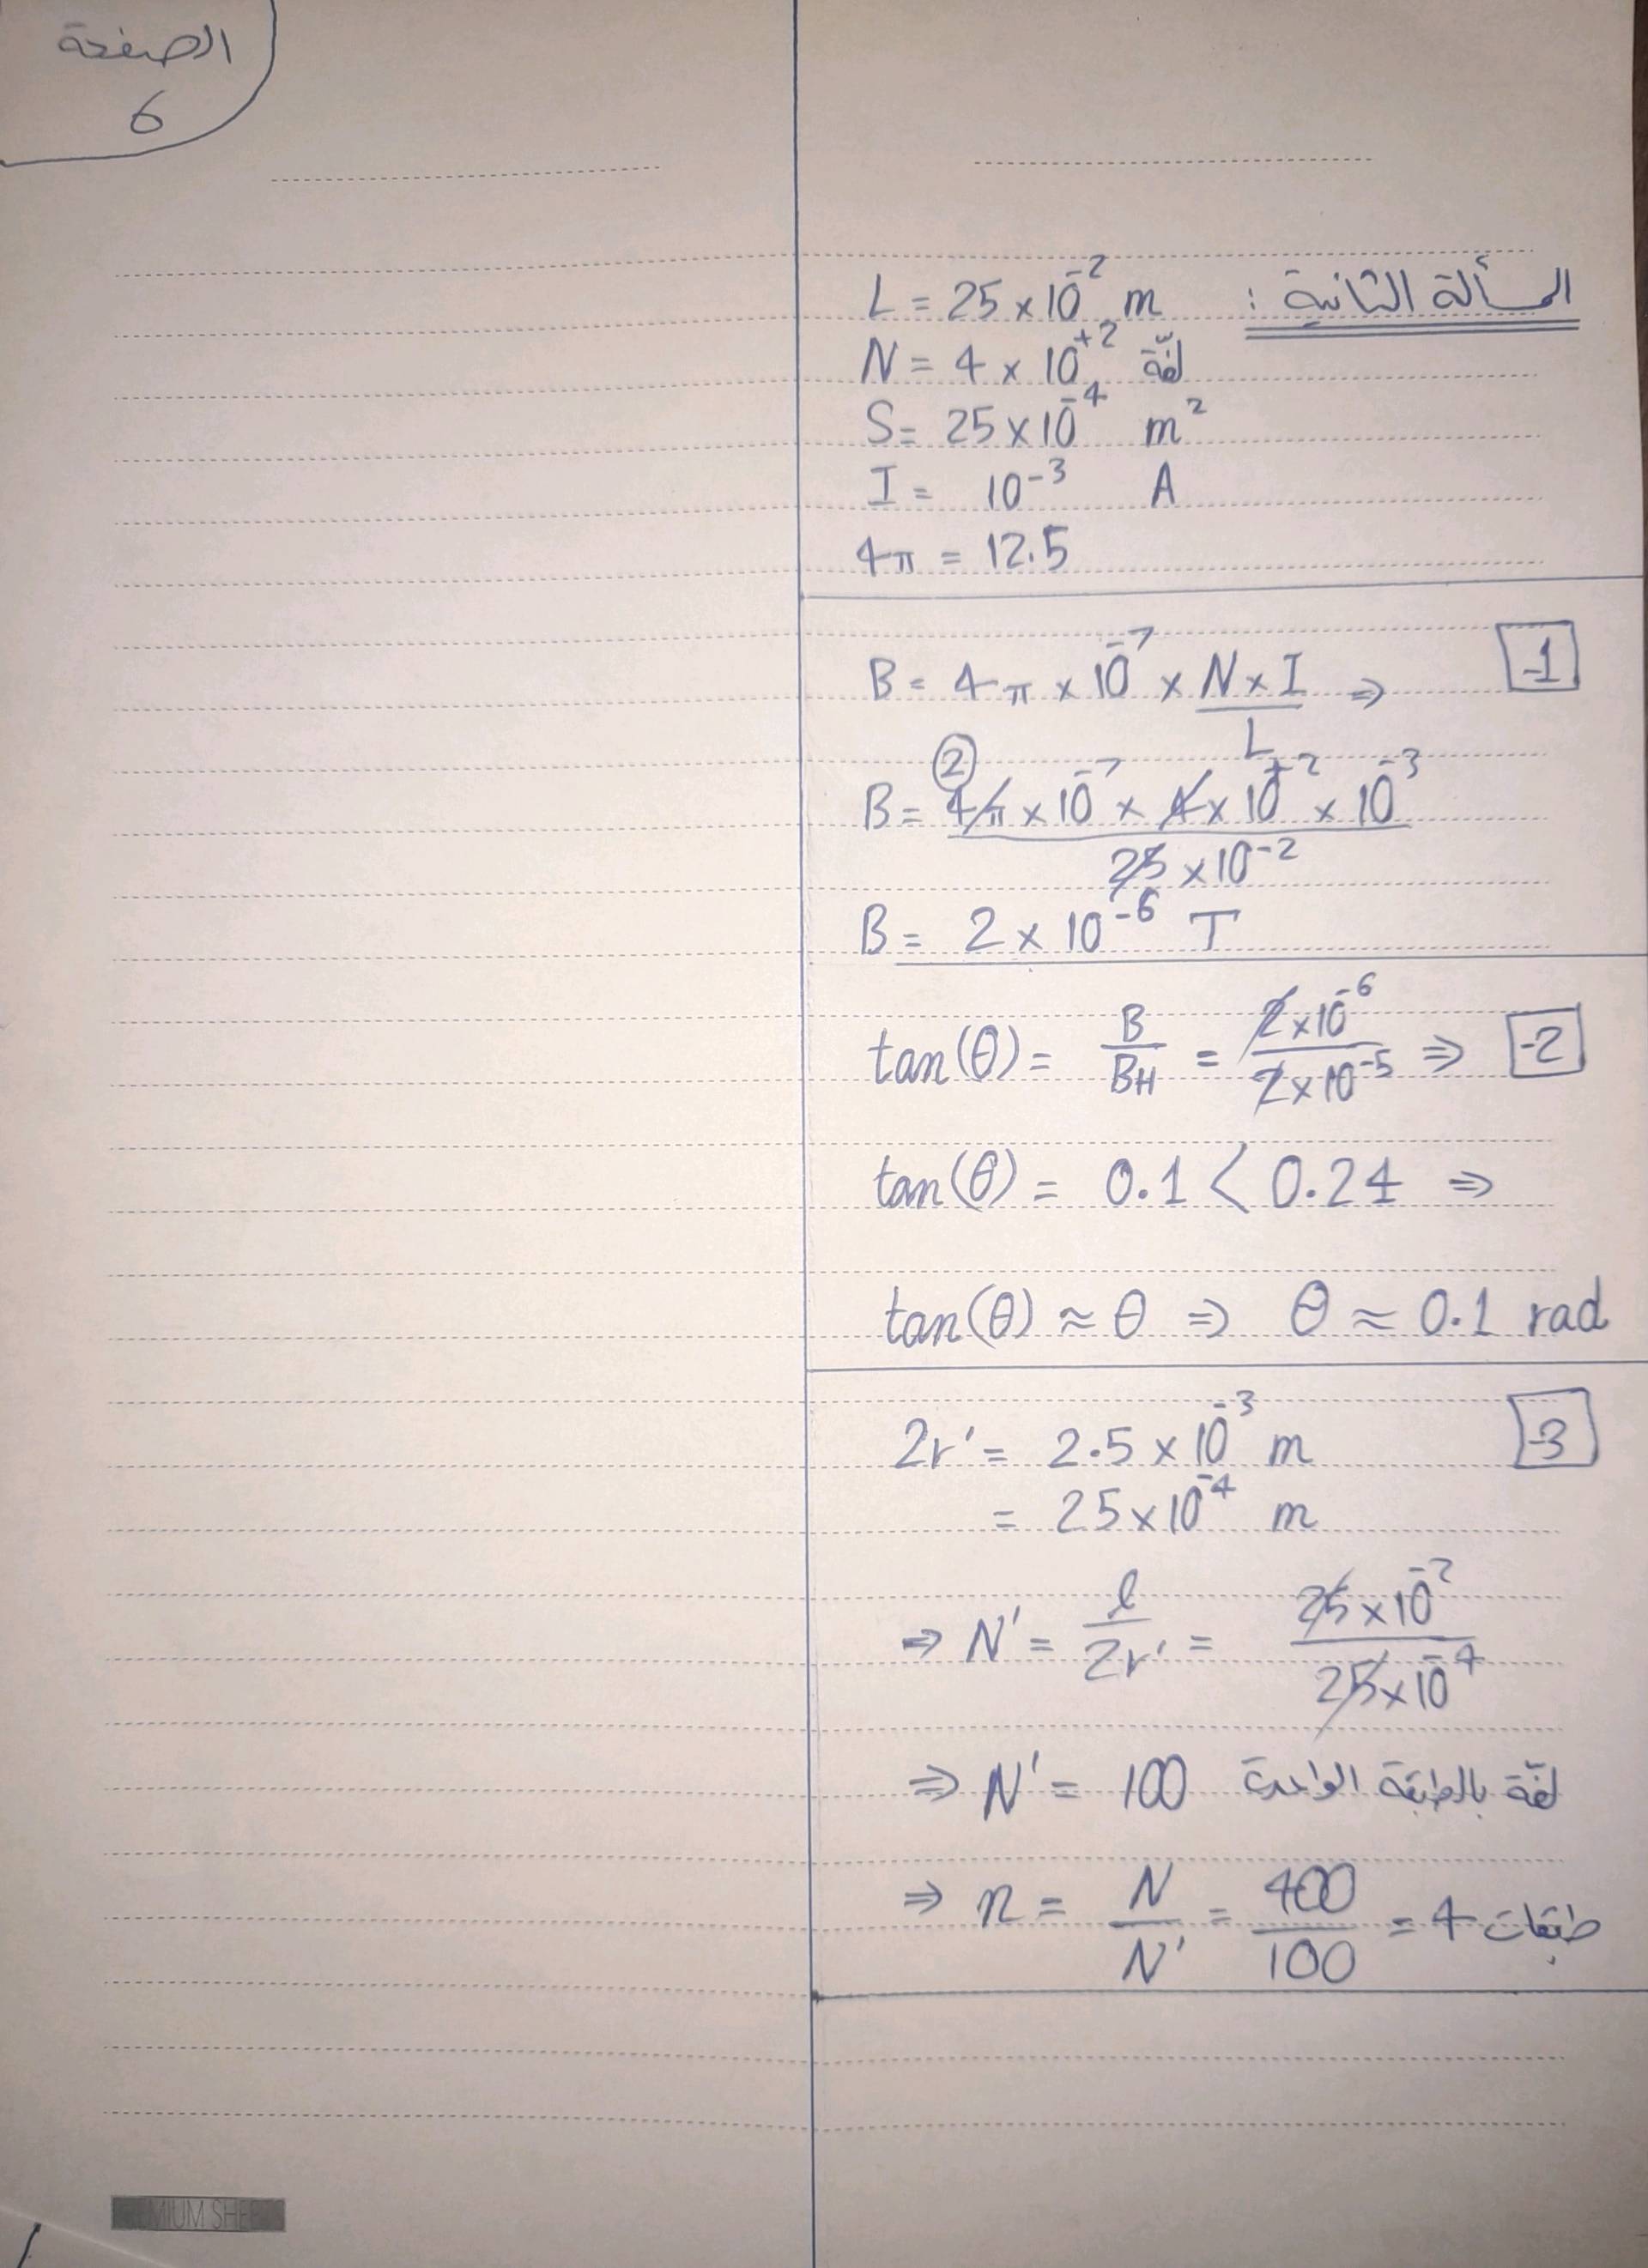 الصفحة
6
المسألة الثانية :
L = 25 × 10⁻² m
N = 4 × 10⁺² لفّة
S = 25 × 10⁻⁴ m²
I = 10⁻³ A
4π = 12.5
-1
B = 4π × 10⁻⁷ × N × I / L ⇒
2
B = 4π × 10⁻⁷ × 4 × 10⁺² × 10⁻³ / 25 × 10⁻²
B = 2 × 10⁻⁶ T
-2
tan(θ) = B / BH = 2 × 10⁻⁶ / 2 × 10⁻⁵ ⇒
tan(θ) = 0.1 < 0.24 ⇒
tan(θ) ≈ θ ⇒ θ ≈ 0.1 rad
-3
2r' = 2.5 × 10⁻³ m
= 25 × 10⁻⁴ m
⇒ N' = l / 2r' = 25 × 10⁻² / 25 × 10⁻⁴
⇒ N' = 100 لفّة بالطبقة الواحدة
⇒ n = N / N' = 400 / 100 = 4 طبقات